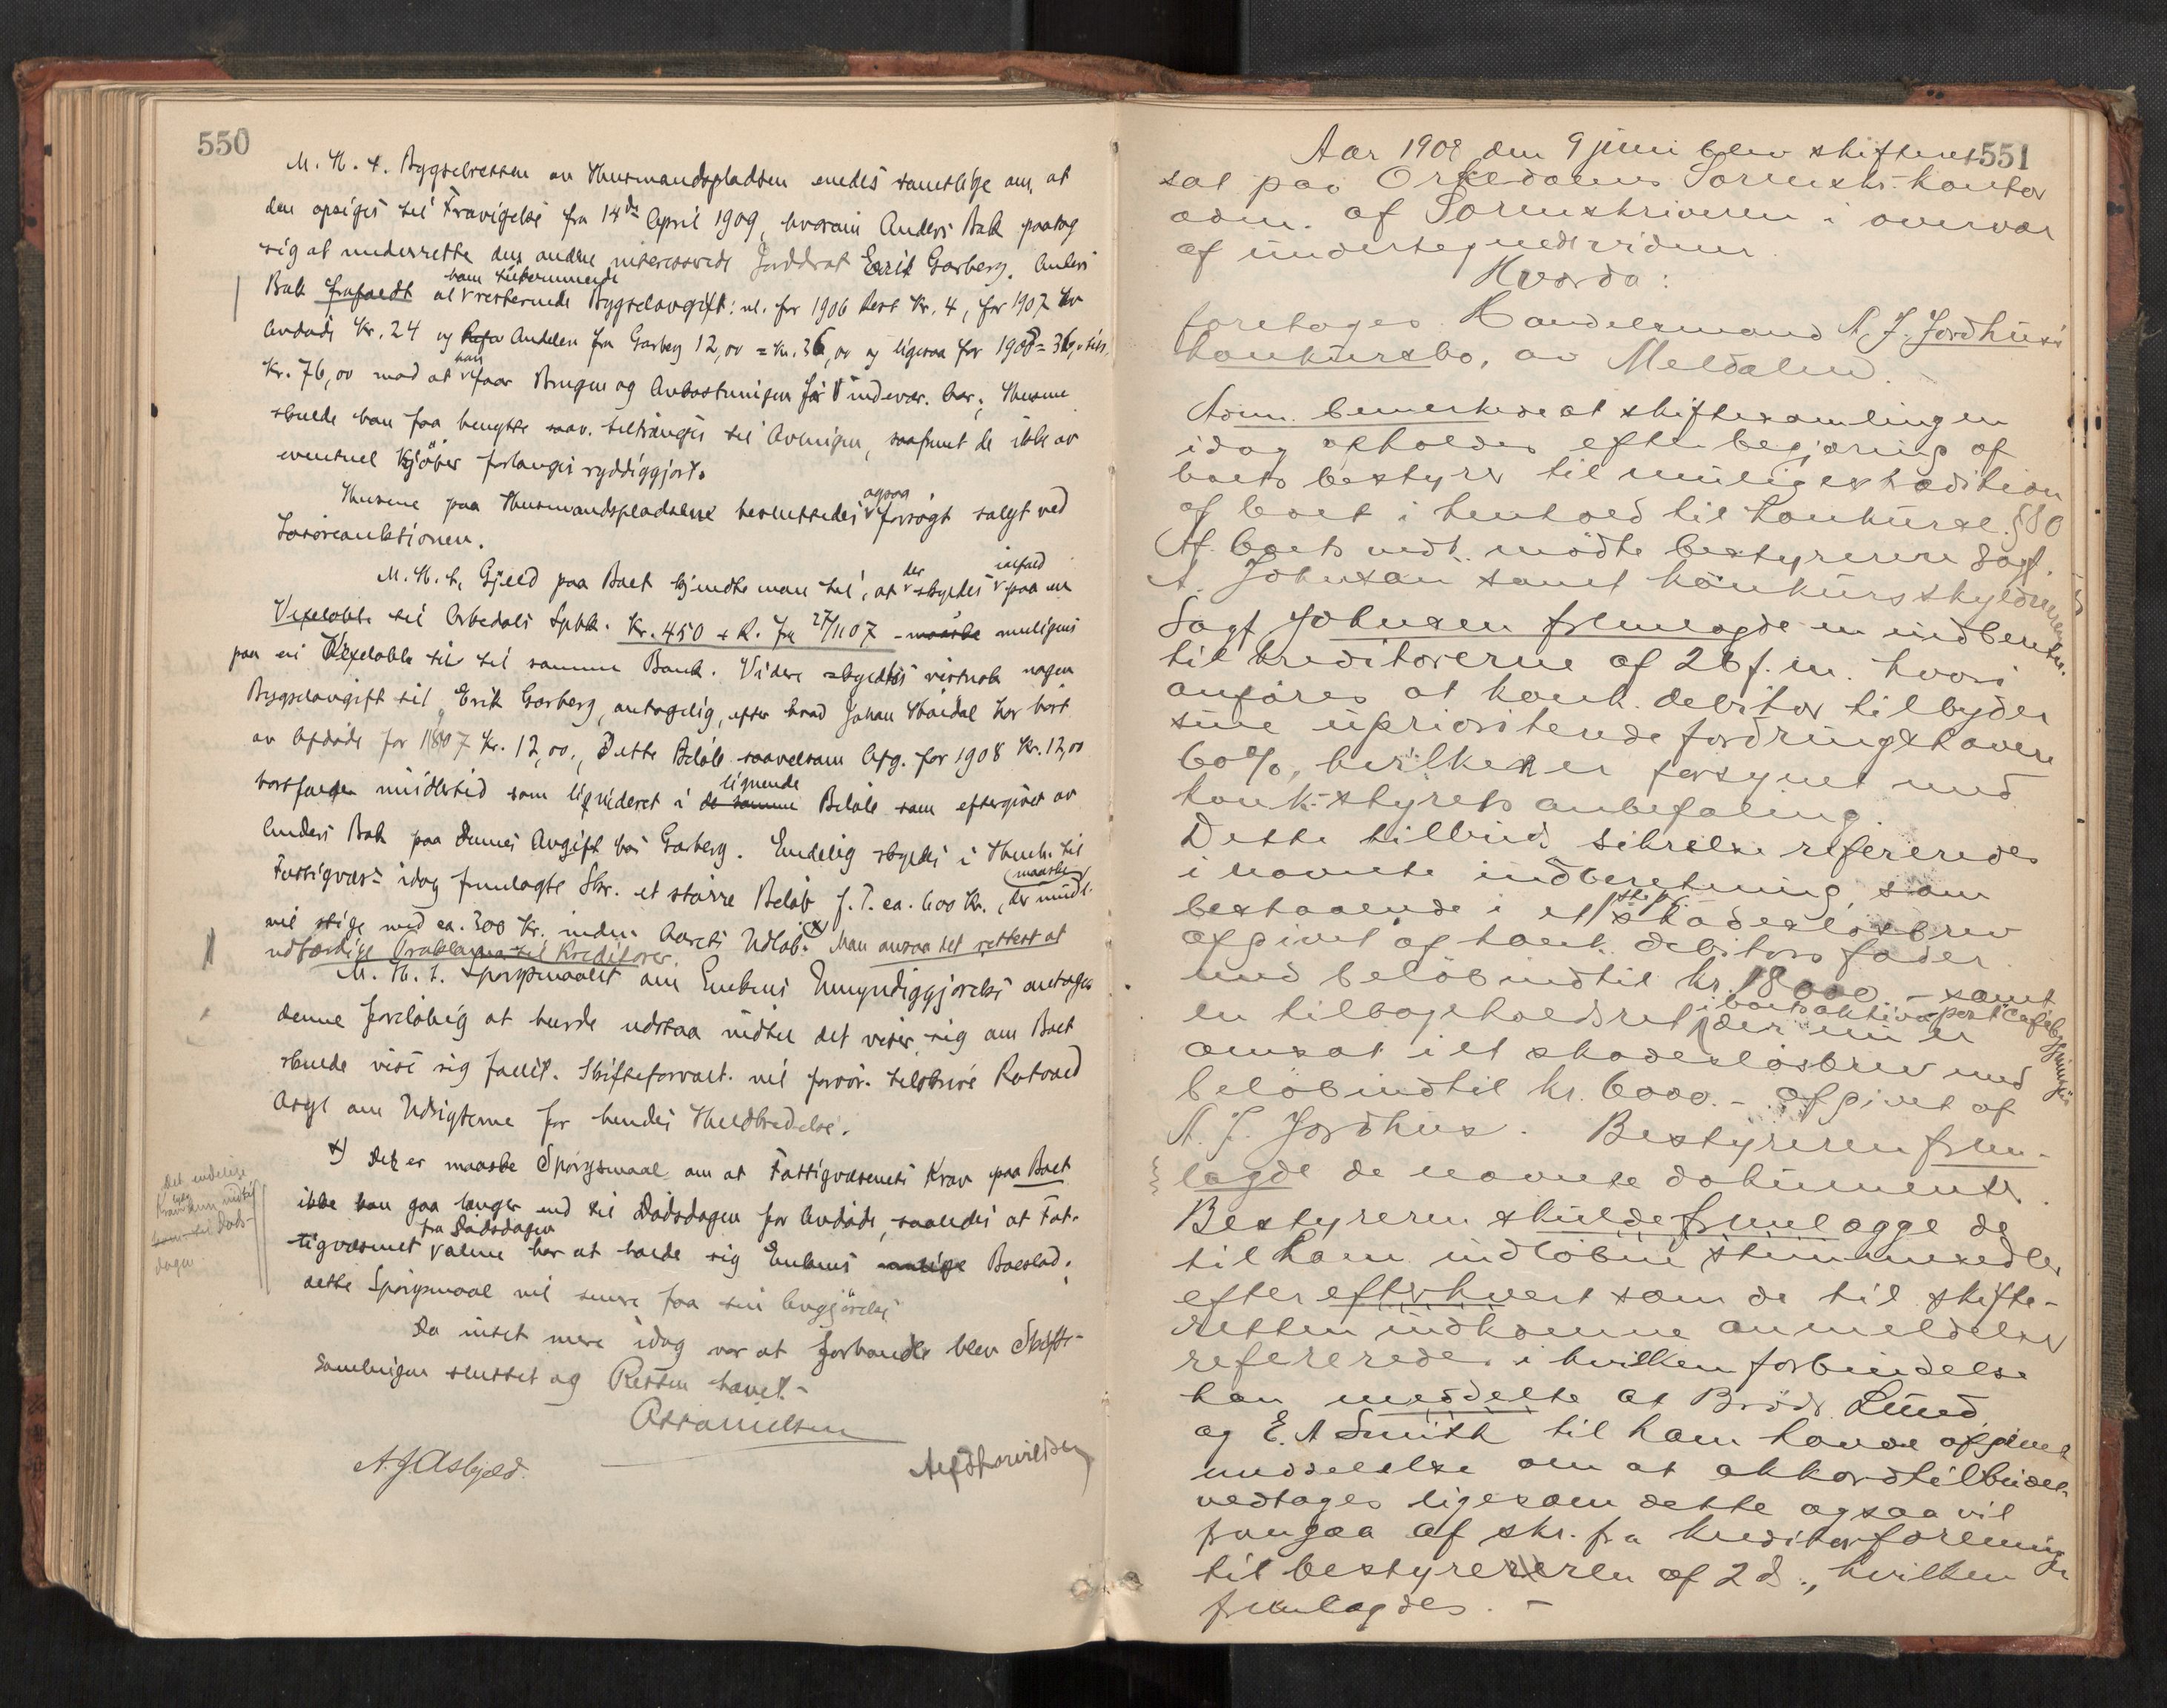 550
M. H. t. Bygselretten av Husmandspladsen enedes samtlige om, at
den opsiges til Fravigelse fra 14de April 1909, hvorom Anders Bak paatog
sig at underrette den anden interesserede Jorddrot Erik Garberg. Anders
Bak frafaldt al ham tilkommende resterende Bygselavgift: nl. for 1906 Rest Kr. 4, for 1907 
Kr. 24 og Andelen fra Garberg 12,00 = Kr. 36,00 og ligesaa for 1908 = 36,
Kr. 76,00 mod at han faar Brugen og Avkastningen for indevær. Aar; Husene
skulde han faa benytte saav. tiltrænges til Avlingen, saafremt de ikke av
eventuel Kjöber forlanges ryddiggjort.
Husene paa Husmandspladsen besluttedes ogsaa forsögt solgt ved
Lösöreauktionen.
M. H. t. Gjeld paa Boet kjendte man til, at der skyldes ialfald paa en
Vexelobl. til Orkedals Spbk. Kr. 450 + R. fra 27/11 07 - maaske muligens
paa en Vexelobl. til til samme Bank. Videre skyldtes visstnok nogen
Bygselavgift til Erik Garberg, antagelig, efter hvad Johan har hört
av Afdöde for 1907 Kr. 12,00, Dette Belöb saavelsom Afg. for 1908 Kr. 12,00
bortfalder imidlertid som likvideret i de samme lignende Belöb som eftergivet av
Anders Bak paa dennes Avgift hos Garberg. Endelig skyldes i Henh. til
Fattigvæs. idag fremlagte Skr. et större Belöb f. T. ca. 600 Kr., der midl. maaske
vil stige med ca. 300 Kr. inden Aarets Udlöb. x) Man ansaa det rettest at
udfærdige Proklama til Kreditorer.
M. H. t. Spörgsmaalet om Enkens Umyndiggjörelse antages
denne foreløbig at burde udstaa indtil det viser sig om Boet
skulde vise sig fallit. Skifteforvalt. vil forsör. tilskrive Rotvold
Asyl om Udsigterne for hendes Helbredelse.
x) Det er maaske Spörgsmaal om at Fattigvæsenets Krav paa Boet
ikke kan gaa længer end til Dödsdagen for Avdöde, saaledes at Fat-
tigvæsenet fra Dödsdagen alene har at holde sig Enkens Boeslod;
dette Spörgsmaal vil senere faa sin Avgjörelse
Da intet mere idag var at forhandle blev Skifte-
samlingen sluttet og Retten hævet. -
A. J. Asbjeld.
Det endelige
Krav kun indtil
Döds-
dagen
551
Aar 1908 den 9 juni blev skifteret
sat paa Orkedalens Sorenskr. kontor
adm. af Sorenskriveren i overvær
af undertegnede vidner
Hvorda:
foretoges Handelsmand A. J. Jordhus's
konkursbo, av Meldalen.
Adm. bemerkede at skiftesamlingen
idag afholdes efter begjæring af
boets bestyrer til mulig extradition
af boet i henhold til konkursl. § 80
Af boets vedk. mödte bestyreren Sagf.
A. Johnsen samt konkursskyldneren
Sagf Johnsen fremlagde en indberetn.
til kreditorerne af 26 f. m. hvori
anföres at konk. debitor tilbyder
sine upriositerede fordringshavere
60%, hvilken er forsynet med
konk.-styrets anbefaling.
Dette tilbuds sikrelse refereredes
i nævnte indberetning, som
bestaaende i et skadeslösbrev
afgivet af konk. debitors fader
med belöb indtil kr. 18000 - samt
en tilbageholdsret i boets aktiva der nu er
omsat i et skadeslösbrev med
belöb indtil kr. 6000. - afgivet af
A. J. Jordhus. Bestyreren frem-
lagde de nævnte dokumenter.
Bestyreren skulde fremlægge de
til ham indlöbne stemmesedler
efter efterhvert som de til skifte-
retten indkomne anmeldelser
refereredes i hvilken forbindelse
han meddelte at Brödr. Lund
og E. A Smith til ham havde afgivet
meddelelse om at akkordtilbudet
vedtages ligesom dette ogsaa vil
fremgaa af skr. fra kreditorforening
til bestyreren af 2 ds., hvilken
fremlagdes. -